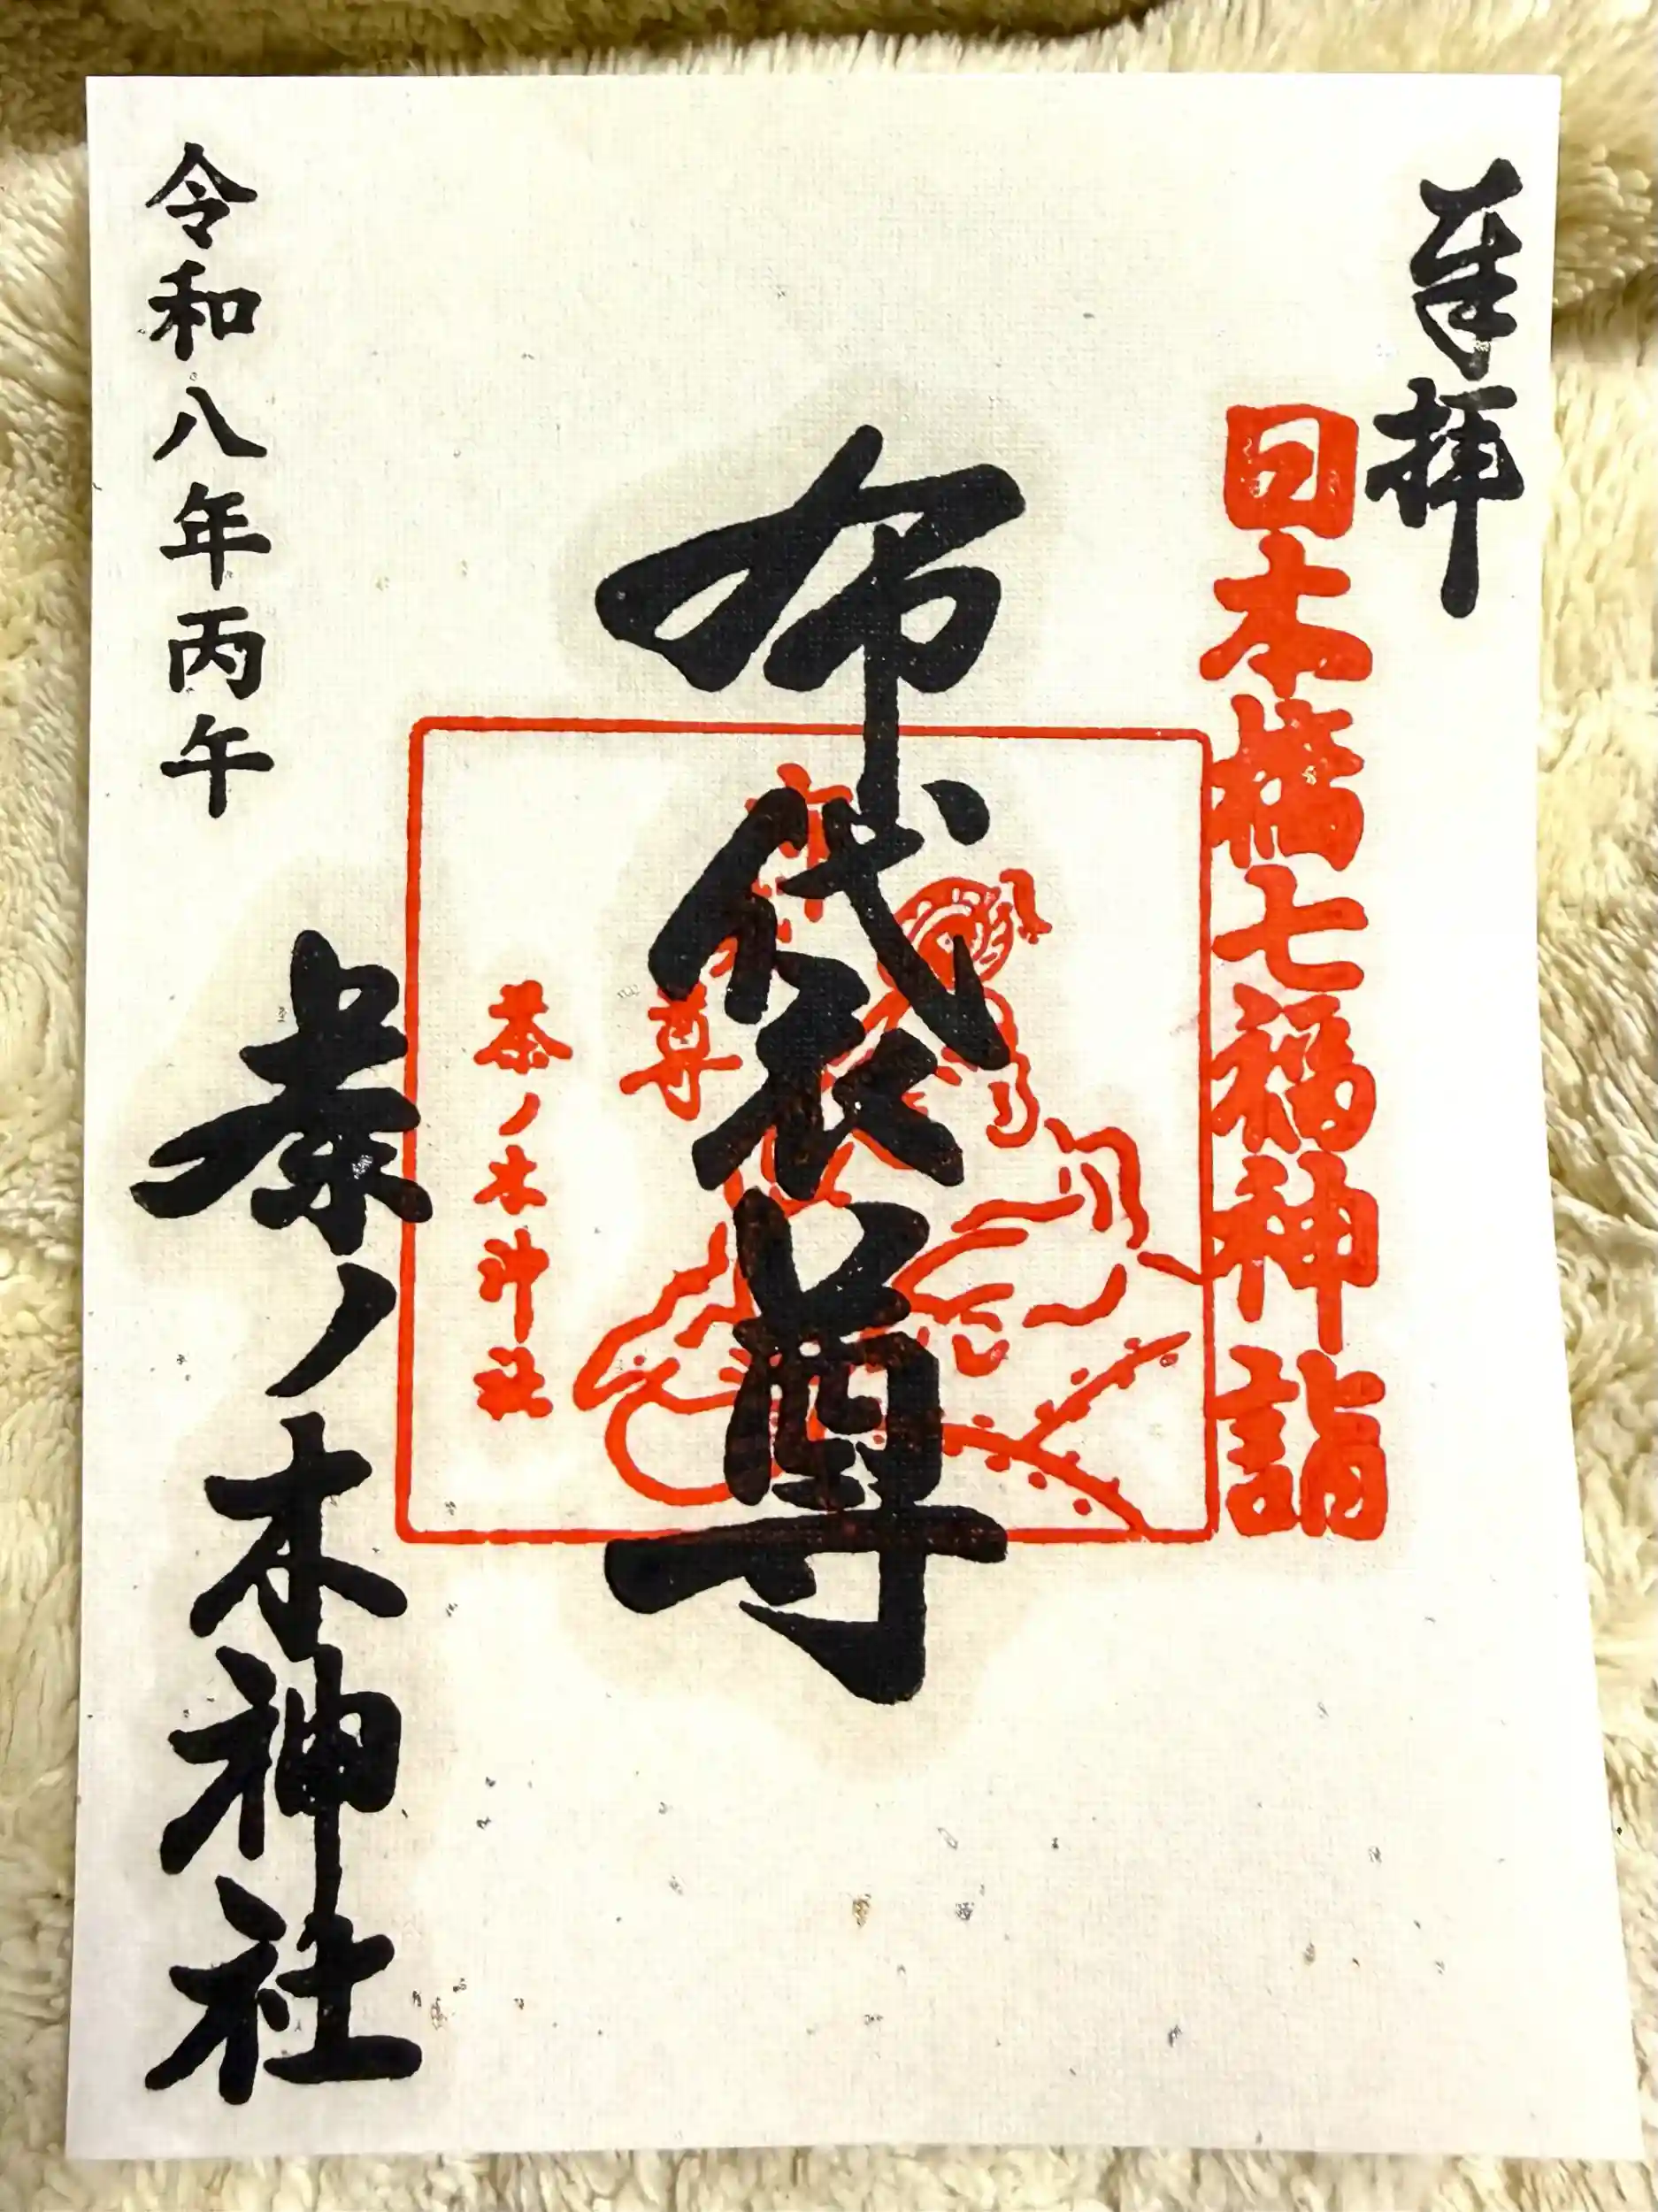 奉拝
日本橋七福神詣
布袋尊
布袋尊
茶ノ木神社
茶ノ木神社
令和八年丙午